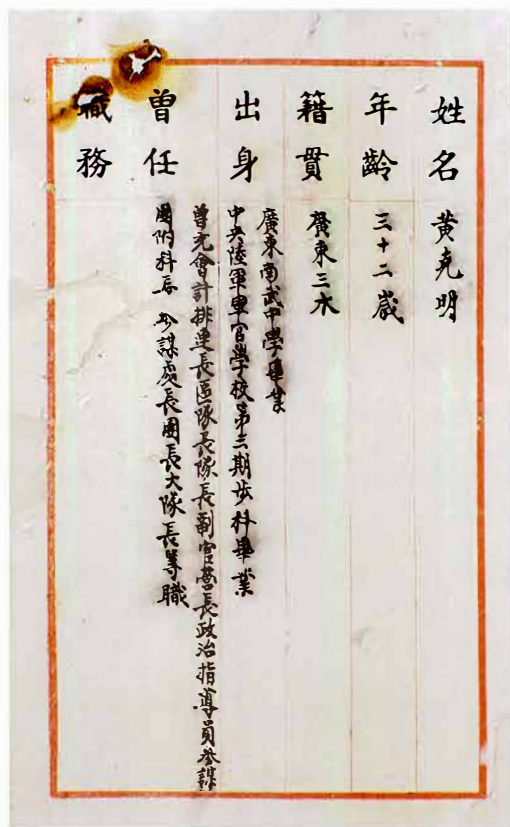 姓名 黄克明
年齡 三十二歲
籍貫 廣東三水
出身 廣東南武中學畢業
中央陸軍軍官學校第三期步科畢業
曾任 曾充會計排連長區隊長隊長副官營長政治指導員參謀
團附科長參謀處長團長大隊長等職
職務